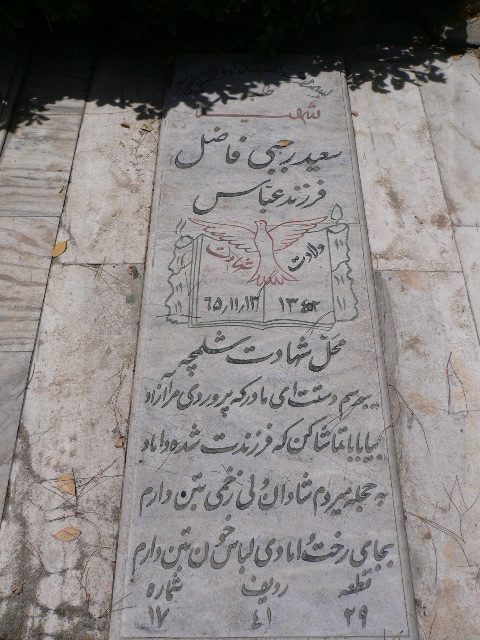 شهید
سعید رجبی فاضل
فرزند عباس
ولادت شهادت
۱۳ ۶۵/۱۱/۱۳
محل شهادت شلمچه
ببوسم دستت ای مادر که پروردی مرا آزاد
بیا بابا تماشا کن که فرزندت شده داماد
به حجله میروم شادان ولی زخمی بتن دارم
بجای رخت دامادی لباس خون بتن دارم
قطعه ردیف شماره
۲۹ ۴۱ ۱۷